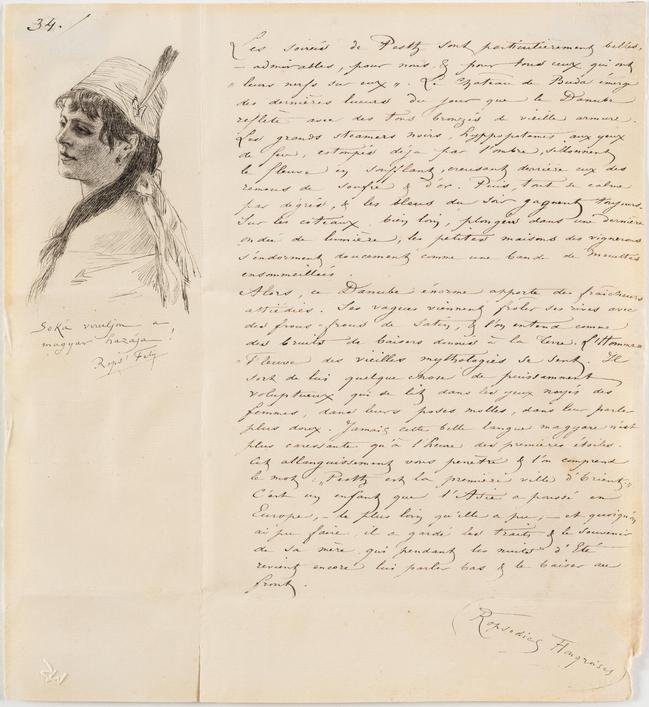 34./
Soká viruljon a
magyar hazája!
Rops Feliz
Les soirées de Pesth sont particulièrement belles,
– admirables, pour nous, & pour tous ceux qui ont
"leurs nerfs sur eux". Le Château de Buda émerge
des dernières lueurs du jour que le Danube
reflète avec des tons bronzés de vieille armure.
Les grands steamers noirs, hyppopotames aux yeux
de feu, estompés déja par l'ombre, sillonnent
le fleuve en soufflant, creusant derrière eux des
remous de soufre & d'or. Puis, tout se calme
par dégrés, & les bleus du soir gagnent toujours.
Sur les côteaux bien loin, plongées dans une dernière
onde de lumière, les petites maisons des vignerons
s'endorment doucement comme une bande de mouettes
ensommeillées.
Alors, ce Danube énorme apporte des fraîcheurs
attiédies. Ses vagues viennent frôler ses rives avec
des frous-frous de satin, & l'on entend comme
des bruits de baisers donnés à la terre. L'Homme-
Fleuve des vieilles mythologies se sent. Il
sort de lui quelque chose de puissamment
voluptueux qui se lit dans les yeux noyés des
femmes, dans leurs poses molles, dans leur parler
plus doux. Jamais cette belle langue magyare n'est
plus caressante qu'à l'heure des premières étoiles.
Cet allanguissement vous pénètre & l'on comprend
le mot: "Pesth est la première ville d'Orient"
C'est un enfant que l'Asie a poussé en
Europe, – le plus loin qu'elle a pu, – et quoiqu'on
ai pu faire, il a gardé les traits & le souvenir
de sa mère qui pendant les nuits d'Eté
revient encore lui parler bas & le baiser au
front.
(Ropsodies Hongroises)